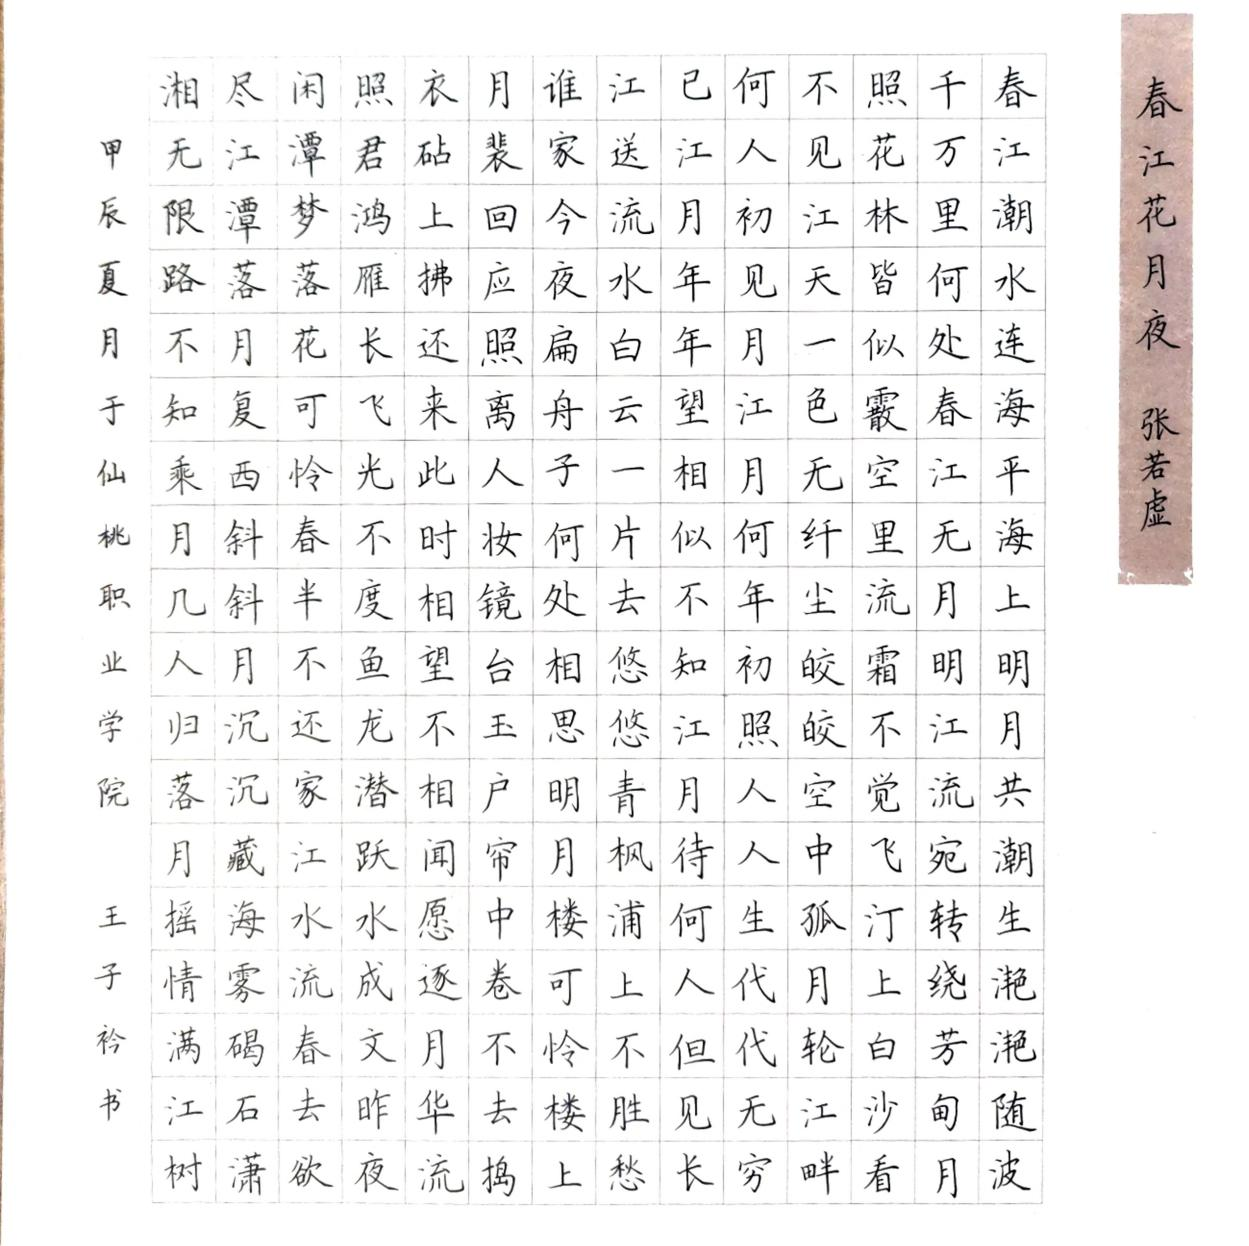 春江花月夜 张若虚
春江潮水连海平海上明月共潮生滟滟随波
千万里何处春江无月明江流宛转绕芳甸月
照花林皆似霰空里流霜不觉飞汀上白沙看
不见江天一色无纤尘皎皎空中孤月轮江畔
何人初见月江月何年初照人人生代代无穷
已江月年年望相似不知江月待何人但见长
江送流水白云一片去悠悠青枫浦上不胜愁
谁家今夜扁舟子何处相思明月楼可怜楼上
月裴回应照离人妆镜台玉户帘中卷不去捣
衣砧上拂还来此时相望不相闻愿逐月华流
照君鸿雁长飞光不度鱼龙潜跃水成文昨夜
闲潭梦落花可怜春半不还家江水流春去欲
尽江潭落月复西斜斜月沉沉藏海雾碣石潇
湘无限路不知乘月几人归落月摇情满江树
甲辰夏月于仙桃职业学院 王子衿书